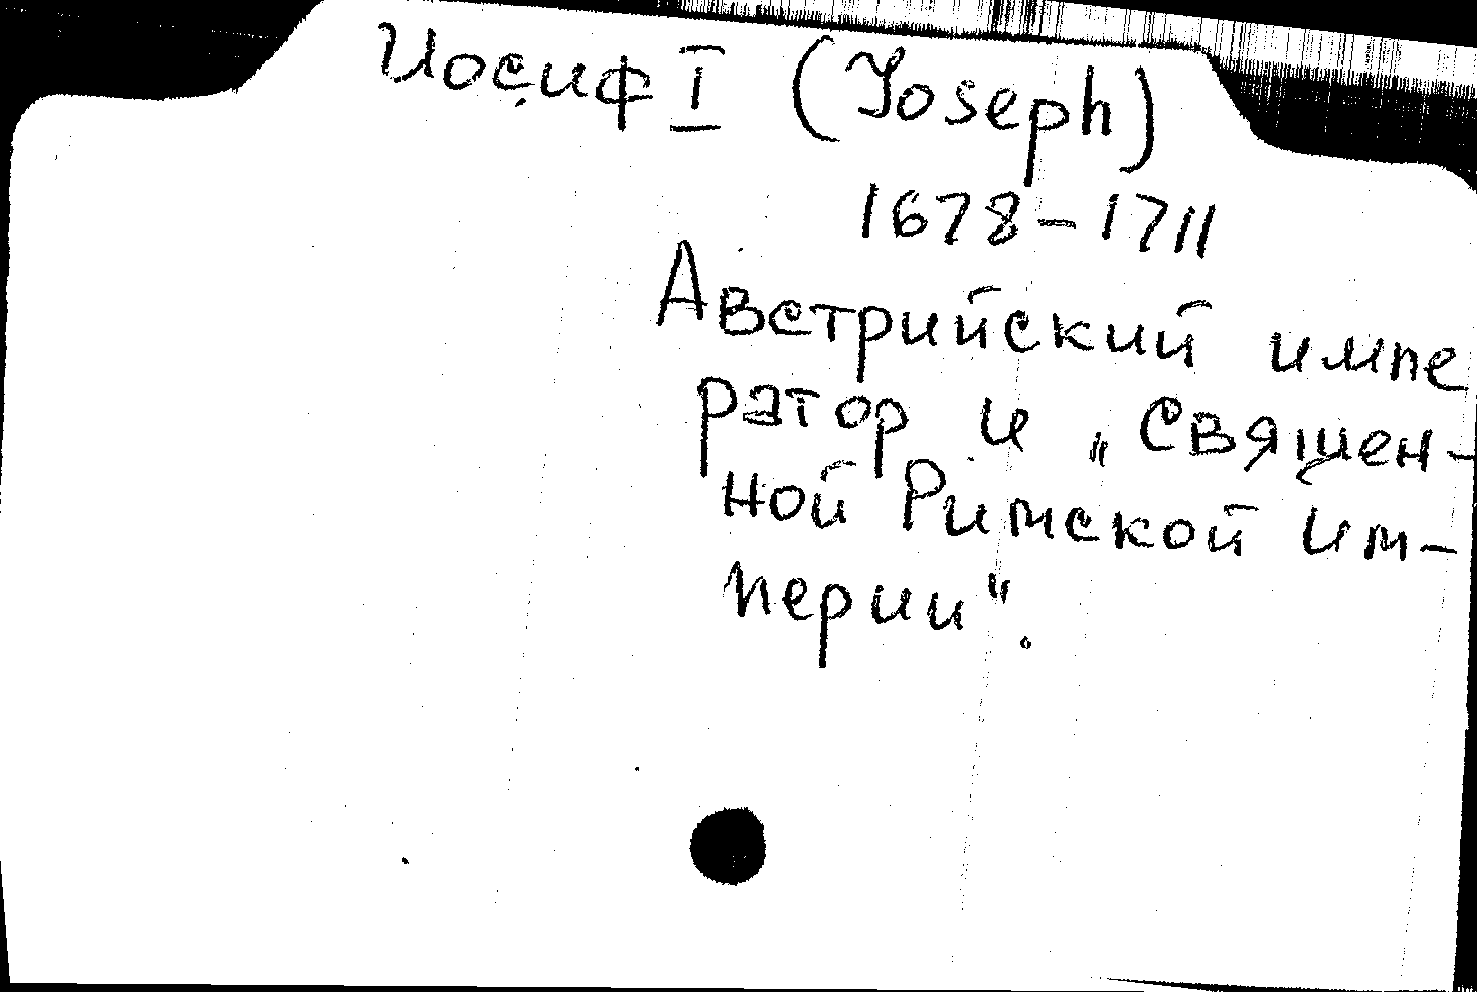 Иосиф I (Joseph)
1678-1711
Австрийский импе
ратор и „Священ-
ной Римской Им-
перии".